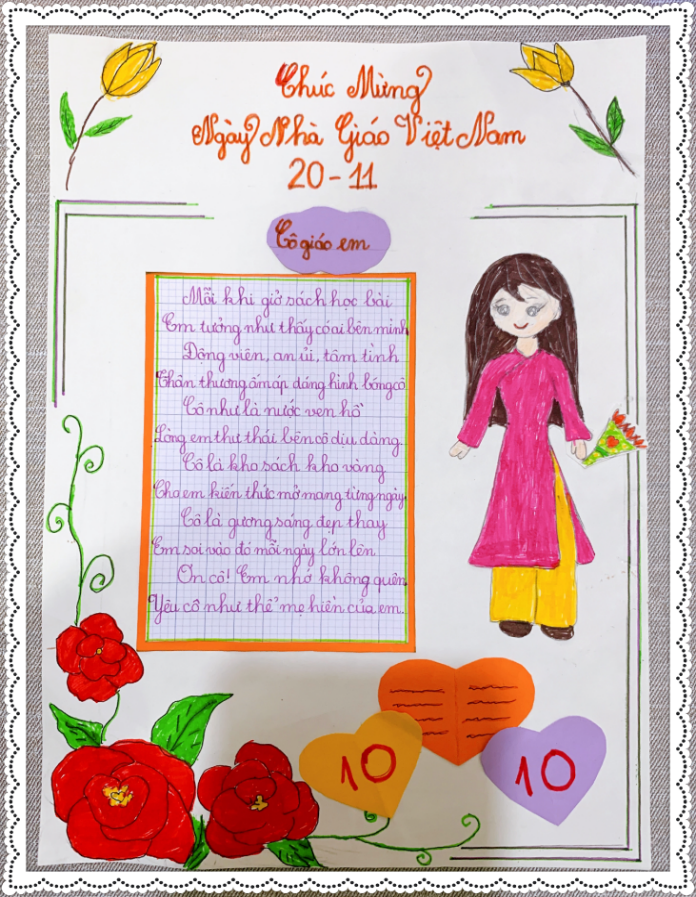 Chúc Mừng
Ngày Nhà Giáo Việt Nam
20-11
Cô giáo em
Mỗi khi giở sách học bài
Em tưởng như thấy có ai bên mình
Động viên, an ủi, tâm tình
Thân thương ấm áp dáng hình bóng cô
Cô như là nước ven hồ
Lòng em thư thái bên cô dịu dàng.
Cô là kho sách kho vàng
Cho em kiến thức mở mang từng ngày.
Cô là gương sáng đẹp thay
Em soi vào đó mỗi ngày lớn lên
Ơn cô! Em nhớ không quên
Yêu cô như thể mẹ hiền của em.
10
10